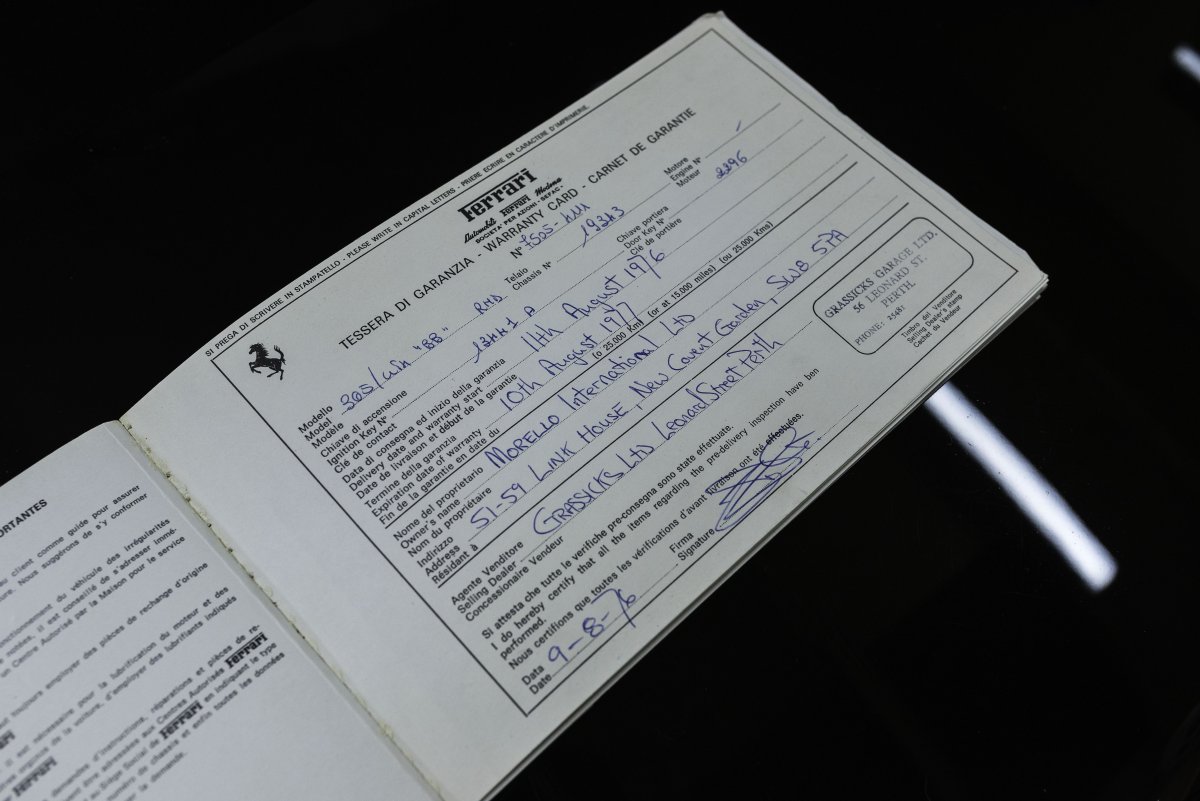 ORTANTES
au client comme guide pour assurer
ture. Nous suggérons de s'y conformer
onctionnement du véhicule des irrégularités
e notées, il est conseillé de s'adresser immé-
un Centre Autorisé par la Maison pour le service
ut toujours employer des pièces de rechange d'origine
il est nécessaire pour la lubrification du moteur et des
organes de la voiture, d'employer des lubrifiants indiqués
Ferrari
demandes d'instructions, réparations et pièces de re-
être adressées aux Centres Autorisés Ferrari
au Siège Social de Ferrari en indiquant le type
numéro de chassis et enfin toutes les données
la demande.
SI PREGA DI SCRIVERE IN STAMPATELLO - PLEASE WRITE IN CAPITAL LETTERS - PRIERE ECRIRE EN CARACTERE D'IMPRIMERIE
Ferrari
Automobili Ferrari Modena
SOCIETA' PER AZIONI - SEFAC -
TESSERA DI GARANZIA - WARRANTY CARD - CARNET DE GARANTIE
N°
Modello
Model
Modèle
"BB" RHD
Telaio
Chassis N°
19343
Motore
Engine N°
Moteur
2296
Chiave di accensione
Ignition Key N°
Clé de contact
Chiave portiera
Door Key N°
Clé de portière
Data di consegna ed inizio della garanzia
Delivery date and warranty start
Date de livraison et début de la garantie
11th August 1976
Termine della garanzia
Expiration date of warranty
Fin de la garantie en date du
10th August 1977
(o 25.000 Km) (or at 15,000 miles) (ou 25,000 Kms)
Nome del proprietario
Owner's name
Nom du propriétaire
MORELLO International LTD
Indirizzo
Address
Résidant à
51-59 LINK HOUSE, New Covent Garden, SW8 5PA
Agente Venditore
Selling Dealer
Concessionaire Vendeur
GRASSICKS LTD Leonard Street Perth
GRASSICKS GARAGE LTD.
56 LEONARD ST.
PERTH
PHONE:
Timbro del Venditore
Selling Dealer's stamp
Cachet du Vendeur
Si attesta che tutte le verifiche pre-consegna sono state effettuate.
I do hereby certify that all the items regarding the pre-delivery inspection have ben
performed.
Nous certifions que toutes les vérifications d'avant livraison ont été effectuées.
Data
Date
9-8-76
Firma
Signature